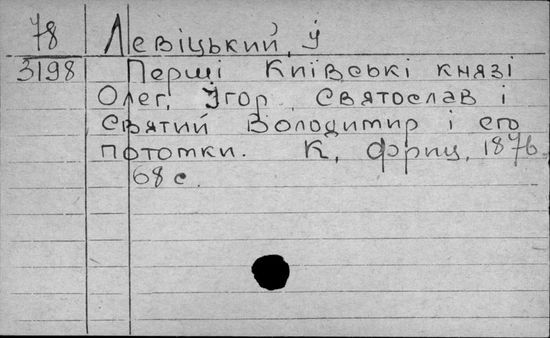 78 Левіцький, У
3198 Перші Київські князі
Олег, Ігор, Святослав і
Святий Володимир і его
потомки. К, Фриц, 1876.
68 с.